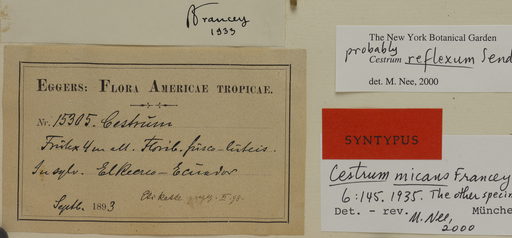 Francey
1933
EGGERS: FLORA AMERICAE TROPICAE.
Nr. 15305. Cestrum
Frutex 4 m alt. Florib. fusco-luteis.
In sylv. El Recreo - Ecuador
Septb. 1893
The New York Botanical Garden
probably
Cestrum reflexum Send
det. M. Nee, 2000
SYNTYPUS
Cestrum micans Francey
6:145. 1935. The other specim
Det. - rev. M. Nee, Münche
2000